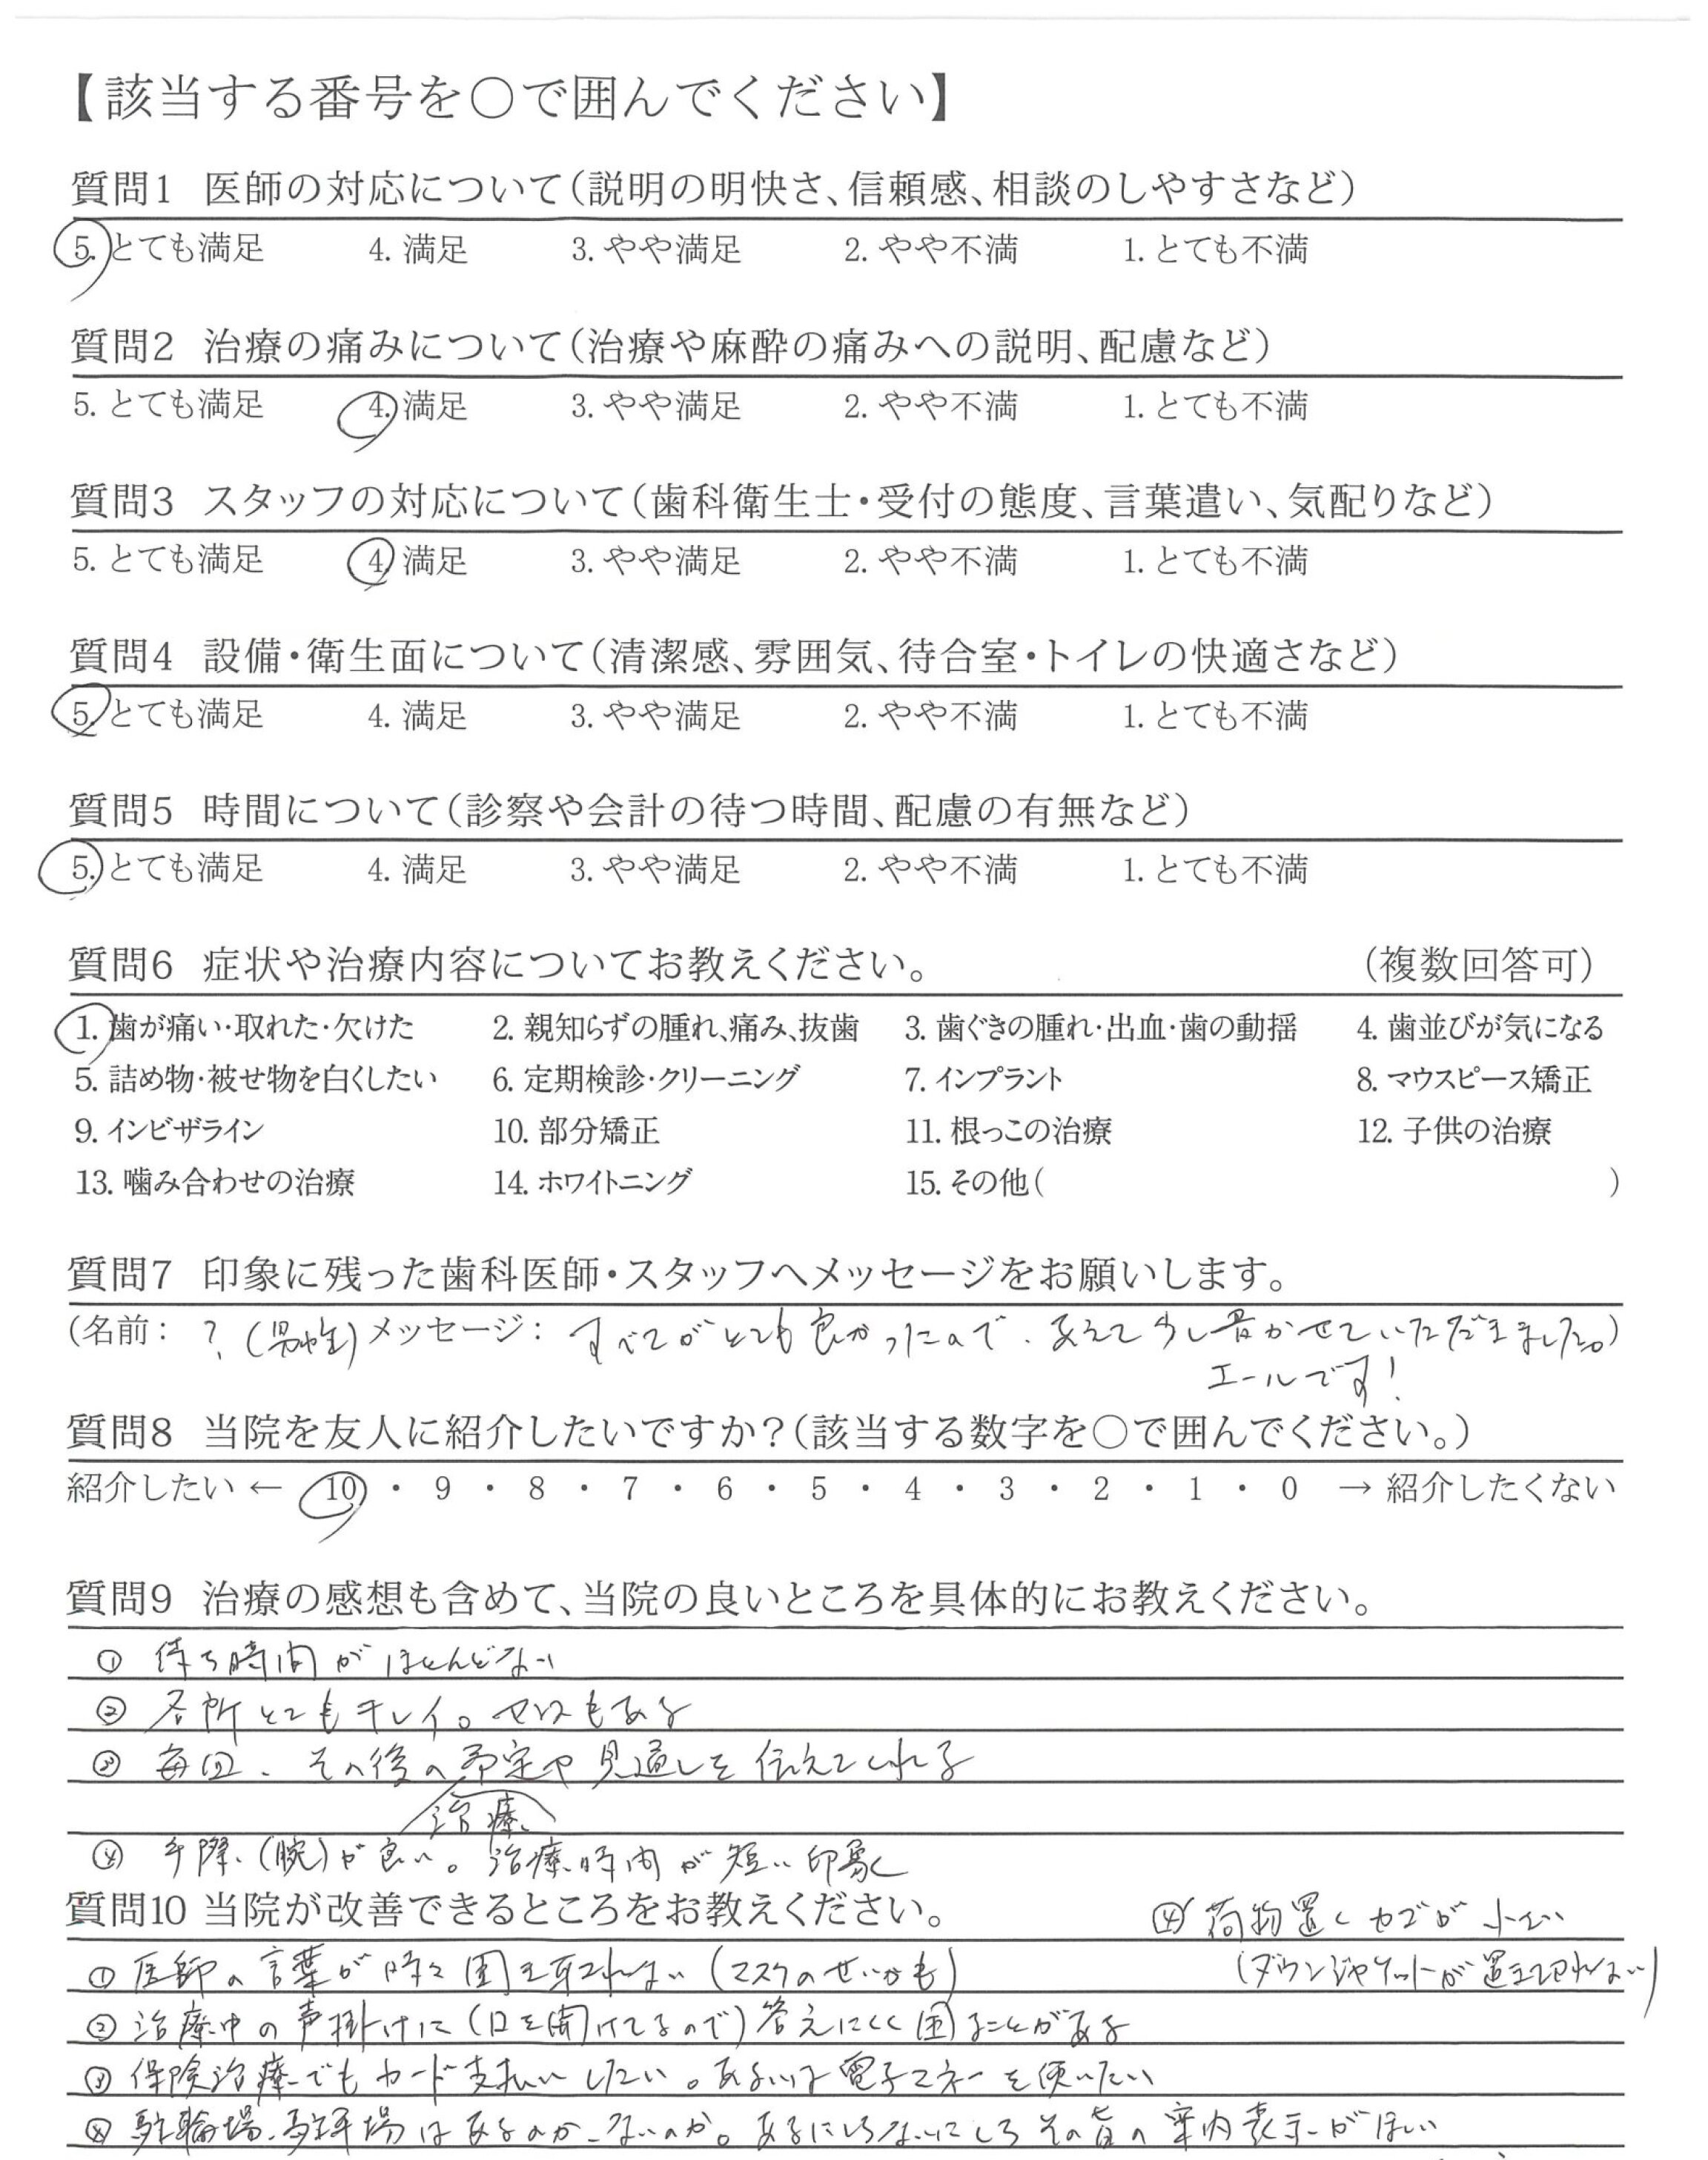 【該当する番号を○で囲んでください】
質問1 医師の対応について（説明の明快さ、信頼感、相談のしやすさなど）
5. とても満足 4. 満足 3. やや満足 2. やや不満 1. とても不満
質問2 治療の痛みについて（治療や麻酔の痛みへの説明、配慮など）
5. とても満足 4. 満足 3. やや満足 2. やや不満 1. とても不満
質問3 スタッフの対応について（歯科衛生士・受付の態度、言葉遣い、気配りなど）
5. とても満足 4. 満足 3. やや満足 2. やや不満 1. とても不満
質問4 設備・衛生面について（清潔感、雰囲気、待合室・トイレの快適さなど）
5. とても満足 4. 満足 3. やや満足 2. やや不満 1. とても不満
質問5 時間について（診察や会計の待つ時間、配慮の有無など）
5. とても満足 4. 満足 3. やや満足 2. やや不満 1. とても不満
質問6 症状や治療内容についてお教えください。 （複数回答可）
1. 歯が痛い・取れた・欠けた 2. 親知らずの腫れ、痛み、抜歯 3. 歯ぐきの腫れ・出血・歯の動揺 4. 歯並びが気になる
5. 詰め物・被せ物を白くしたい 6. 定期検診・クリーニング 7. インプラント 8. マウスピース矯正
9. インビザライン 10. 部分矯正 11. 根っこの治療 12. 子供の治療
13. 噛み合わせの治療 14. ホワイトニング 15. その他（ ）
質問7 印象に残った歯科医師・スタッフへメッセージをお願いします。
（名前： ？（男性） メッセージ： すべてがとても良かったので、あえて少し書かせていただきました。）
エールです！
質問8 当院を友人に紹介したいですか？（該当する数字を○で囲んでください。）
紹介したい ← 10 ・ 9 ・ 8 ・ 7 ・ 6 ・ 5 ・ 4 ・ 3 ・ 2 ・ 1 ・ 0 → 紹介したくない
質問9 治療の感想も含めて、当院の良いところを具体的にお教えください。
① 待ち時間がほとんどない
② 各所とてもキレイ。センスもある
③ 毎回、その後の予定や見通しを伝えてくれる
治療
④ 手際（腕）が良い。治療時間が短い印象
質問10 当院が改善できるところをお教えください。
④' 荷物置くカゴが小さい
（ダウンジャケットが置ききれない）
① 医師の言葉が時々聞き取れない（マスクのせいかも）
② 治療中の声掛けに（口を開けてるので）答えにくく困ることがある
③ 保険治療でもカード支払いしたい。あるいは電子マネーを使いたい
④ 駐輪場、駐車場はあるのか、ないのか。あるにしろないにしろその旨の案内表示がほしい